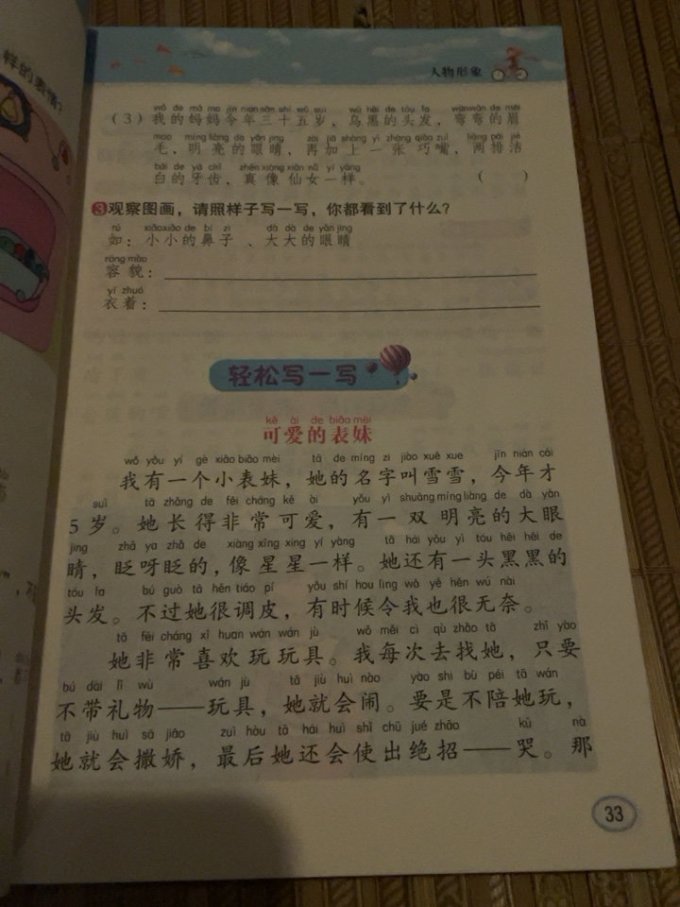 样的表情？
人物形象
wǒ de mā ma jīn nián sān shí wǔ suì wū hēi de tóu fa wānwān de méi
（3）我的妈妈今年三十五岁，乌黑的头发，弯弯的眉
mao míng liàng de yǎn jing zài jiā shàng yì zhāng qiǎo zuǐ liǎng pái jié
毛，明亮的眼睛，再加上一张巧嘴，两排洁
bái de yá chǐ zhēn xiàng xiān nǚ yí yàng
白的牙齿，真像仙女一样。 （ ）
❸观察图画，请照样子写一写，你都看到了什么？
rú xiǎoxiǎo de bí zi dà dà de yǎn jing
如：小小的鼻子 、大大的眼睛
róng mào
容貌：
yī zhuó
衣着：
轻松写一写
kě ài de biǎo mèi
可爱的表妹
wǒ yǒu yí gè xiǎo biǎo mèi tā de míng zi jiào xuě xue jīn nián cái
我有一个小表妹，她的名字叫雪雪，今年才
suì tā zhǎng de fēi cháng kě ài yǒu yì shuāng míng liàng de dà yǎn
5岁。她长得非常可爱，有一双明亮的大眼
jing zhǎ ya zhǎ de xiàng xīng xing yí yàng tā hái yǒu yì tóu hēi hēi de
睛，眨呀眨的，像星星一样。她还有一头黑黑的
tóu fa bú guò tā hěn tiáo pí yǒu shí hou lìng wǒ yě hěn wú nài
头发。不过她很调皮，有时候令我也很无奈。
tā fēi cháng xǐ huan wán wán jù wǒ měi cì qù zhǎo tā zhǐ yào
她非常喜欢玩玩具。我每次去找她，只要
bú dài lǐ wù wán jù tā jiù huì nào yào shi bù péi tā wán
不带礼物——玩具，她就会闹。要是不陪她玩，
tā jiù huì sā jiāo zuì hòu tā hái huì shǐ chū jué zhāo kū nà
她就会撒娇，最后她还会使出绝招——哭。那
33